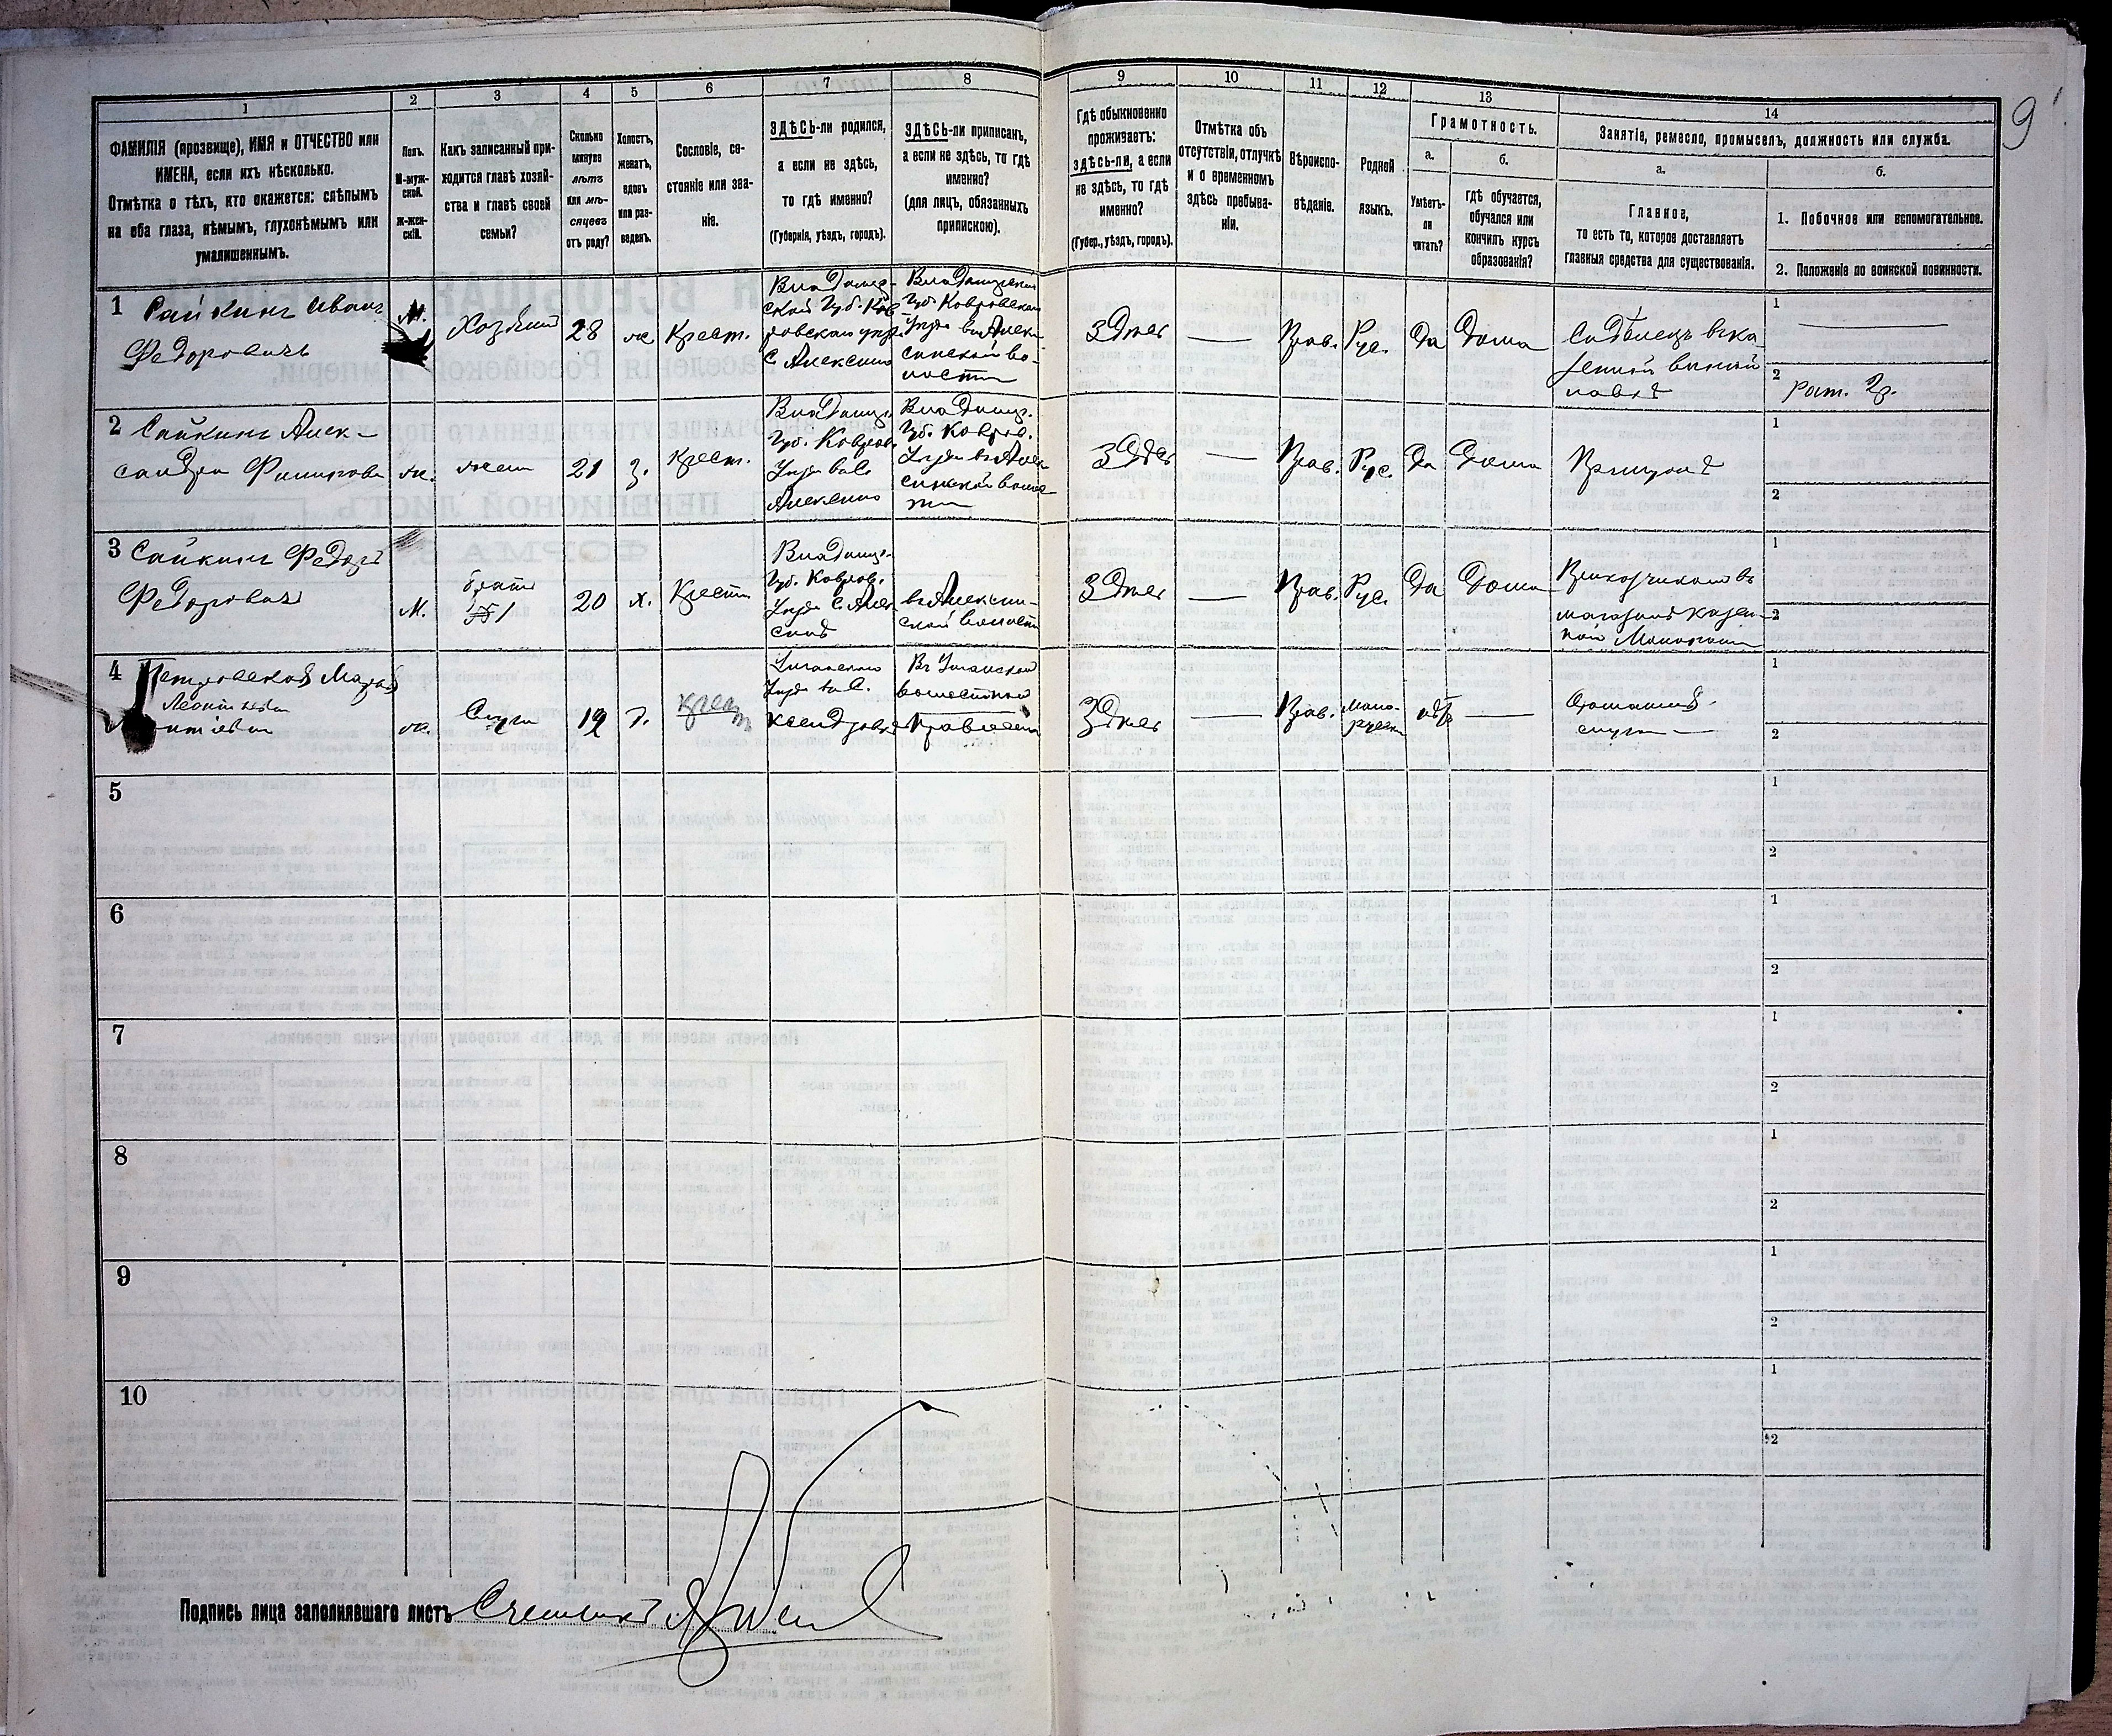 1
2
3
4
5
6
7
8
9
10
11
12
13
14
9
ФАМИЛІЯ (прозвище), ИМЯ и ОТЧЕСТВО или
ИМЕНА, если ихъ нѣсколько.
Отмѣтка о тѣхъ, кто окажется: слѣпымъ
на оба глаза, нѣмымъ, глухонѣмымъ или
умалишеннымъ.
Полъ.
М-муж-
ской.
Ж-жен-
скій.
Какъ записанный при-
ходится главѣ хозяй-
ства и главѣ своей
семьи?
Сколько
минуло
лѣтъ
или мѣ-
сяцевъ
отъ роду?
Холостъ,
женатъ,
вдовъ
или раз-
веденъ.
Сословіе, со-
стояніе или зва-
ніе.
ЗДѢСЬ-ли родился,
а если не здѣсь,
то гдѣ именно?
(Губернія, уѣздъ, городъ).
ЗДѢСЬ-ли приписанъ,
а если не здѣсь, то гдѣ
именно?
(для лицъ, обязанныхъ
припискою).
Гдѣ обыкновенно
проживаетъ:
здѣсь-ли, а если
не здѣсь, то гдѣ
именно?
(Губер., уѣздъ, городъ).
Отмѣтка объ
отсутствіи, отлучкѣ
и о временномъ
здѣсь пребыва-
ніи.
Вѣроиспо-
вѣданіе.
Родной
языкъ.
Грамотность.
а.
Умѣетъ-
ли
читать?
б.
гдѣ обучается,
обучался или
кончилъ курсъ
образованія?
Занятіе, ремесло, промыселъ, должность или служба.
а.
Главное,
то есть то, которое доставляетъ
главныя средства для существованія.
б.
1. Побочное или вспомогательное.
2. Положеніе по воинской повинности.
1
Сайкинъ Иванъ
Федоровичъ
М.
Хозяинъ
28
ж
Крест.
Владимір-
ской Губ. Ков
ровскаго уѣзда
С Алексино
Владимірской
Губ. Ковровскаго
Уѣзда въ Алек-
синской во-
лости
Здѣсь
Прав.
Рус.
Да
Дома
Сидѣлецъ въ ка
зенной винной
лавкѣ
1
2
рат. 2р.
2
Сайкина Алек-
сандра
ж.
жена
21
З.
Крест.
Владимір.
Губ. Ковров.
Уѣзда въ с
Алексино
Владимір.
Губ. Ковров.
Уѣзда въ Алек
синской волос-
ти
Здѣсь
Прав.
Рус.
Да
Дома
При мужѣ
1
2
3
Сайкинъ Федоръ
Федоровичъ
М.
братъ
№ 1
20
х.
Крест
Владимір.
Губ. Ковров.
Уѣзда С Алек
синѣ
въ Алексин-
ской волости
Здѣсь
Прав.
Рус.
Да
Дома
Прикащикомъ въ
магазинѣ казен-
ной Монополіи
1
2
4
Петровская Марія
ж.
Слуга
19
д.
крест
Уманскаго
Уѣзда въ с.
Въ Уманской
волостной
Правленіи
Здѣсь
Прав.
Мало-
русскі
нѣтъ
Домашняя
слуга
1
2
5
1
2
6
1
2
7
1
2
8
1
2
9
1
2
10
1
2
Подпись лица заполнявшаго листъ Счетчикъ